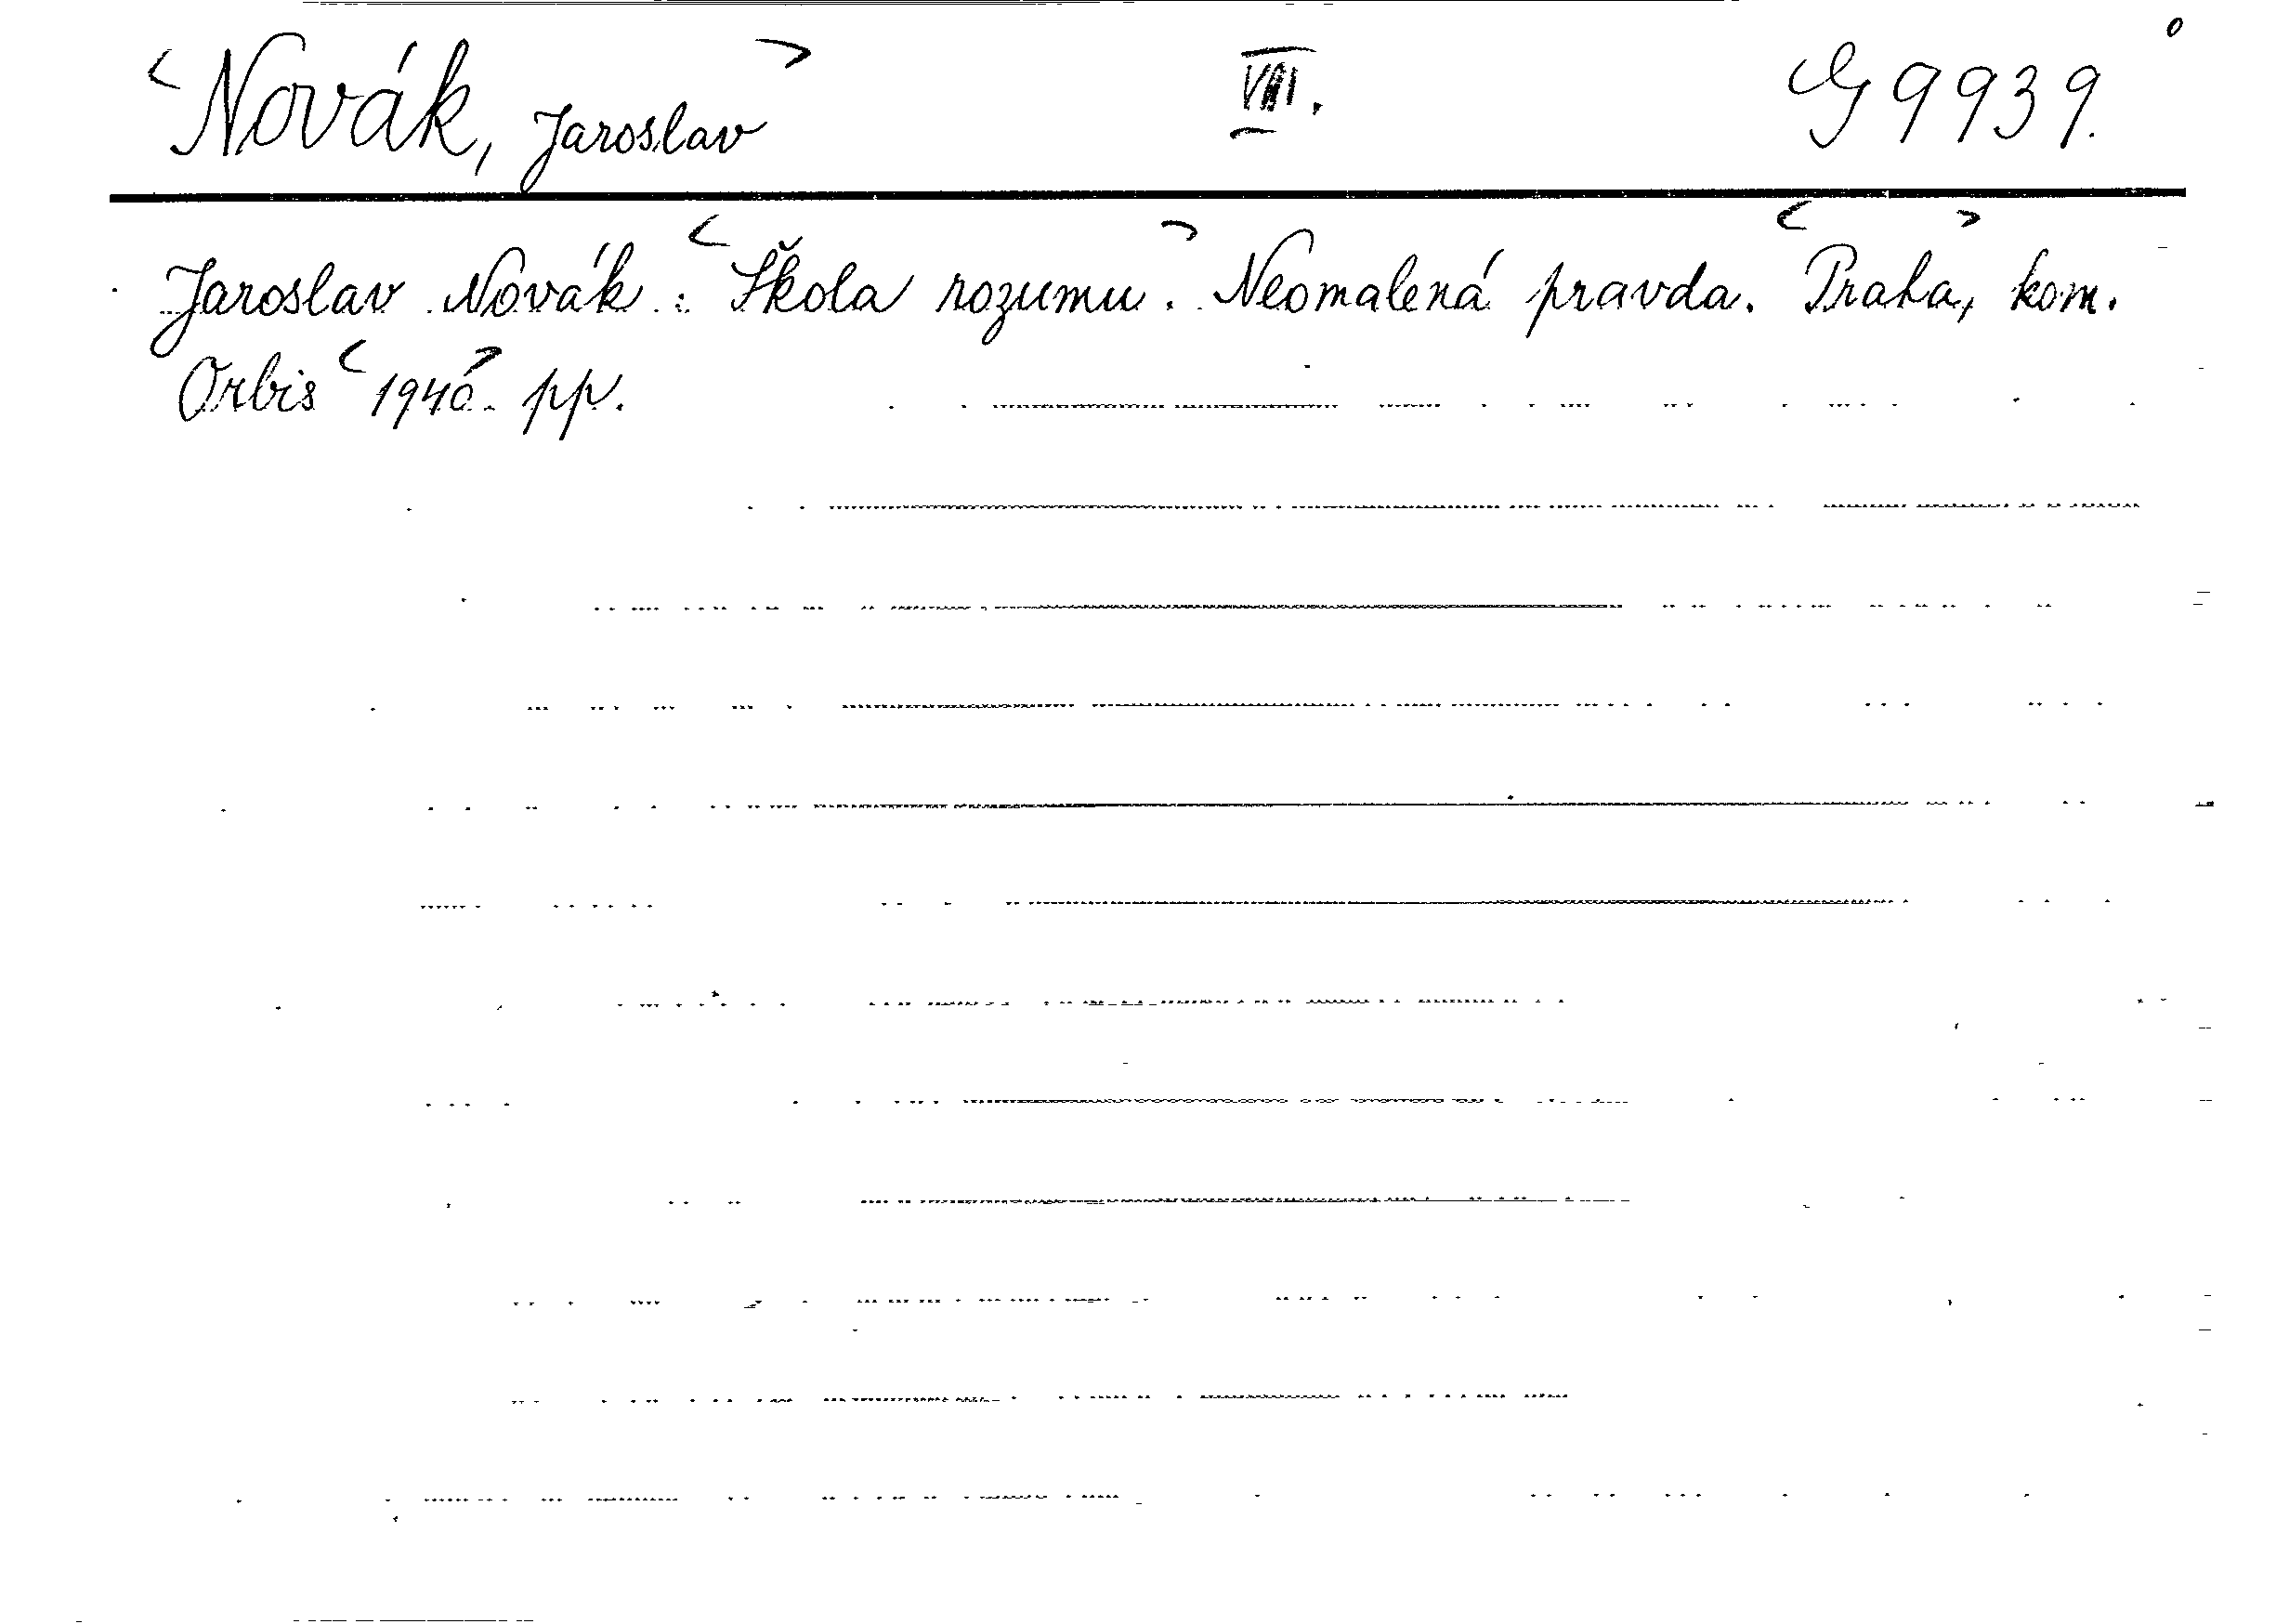 <Novák, Jaroslav> VIII. G 9939.
Jaroslav Novák: <Škola rozumu>. Neomalená pravda. <Praha>, kom.
Orbis <1940>. pp.